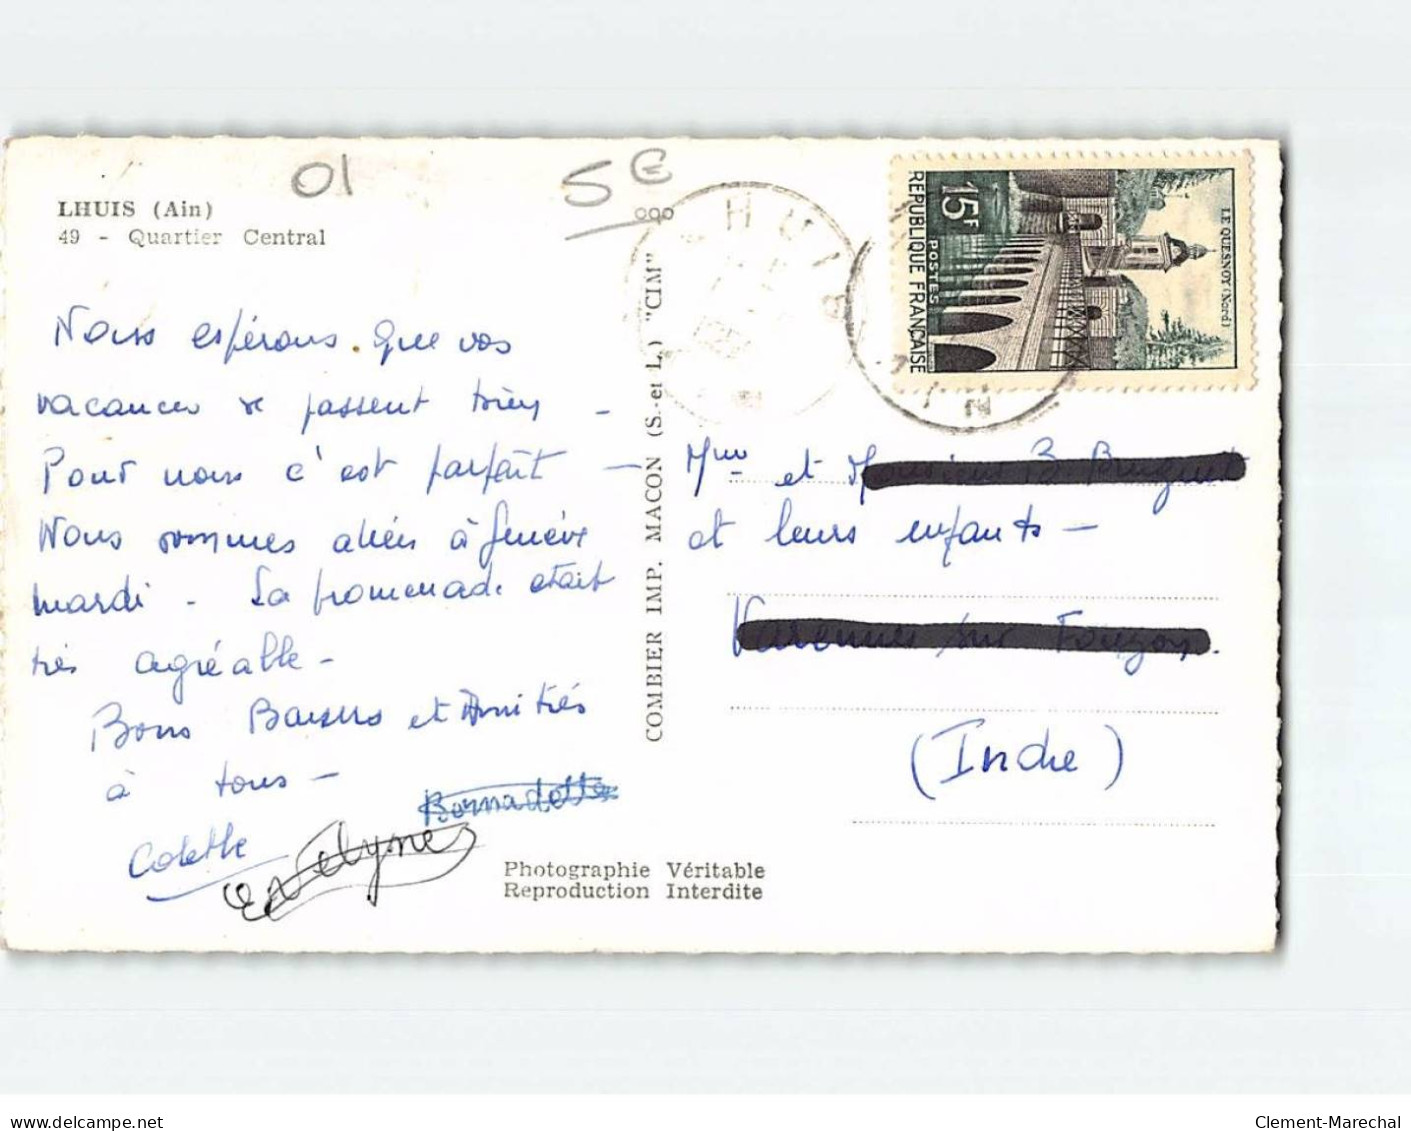 LHUIS (Ain)
49 - Quartier Central
01
5€
Nous espérons que vos
vacances se passent très
Pour nous c'est parfait -
Nous sommes allées à Genève
mardi - La promenade était
très agréable -
Bons Baisers et Amitiés
à tous -
Colette
Evelyne
Bernadette
COMBIER IMP. MACON (S.-et L.) "CIM"
Photographie Véritable
Reproduction Interdite
LHUIS
15F
POSTES
REPUBLIQUE FRANÇAISE
LE QUESNOY (Nord)
Mme et
et leurs enfants -
(Indre)
www.delcampe.net
Clement-Marechal